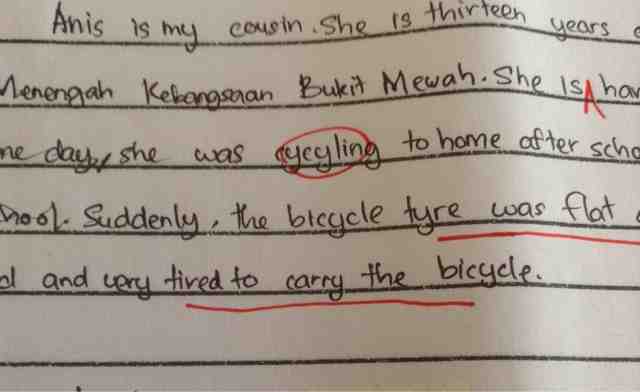 Anis is my cousin. She is thirteen years
Menengah Kebangsaan Bukit Mewah. She is
day, she was cycyling to home after
Suddenly, the bicycle tyre was flat
and very tired to carry the bicycle.